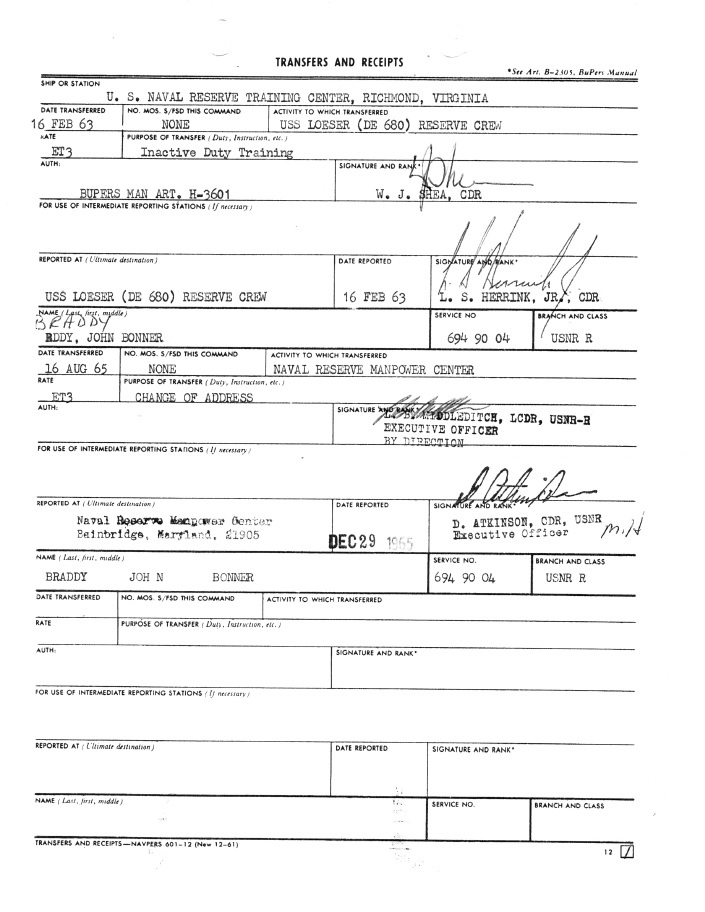 TRANSFERS AND RECEIPTS
*See Art. B-2305, BuPers Manual
SHIP OR STATION
U. S. NAVAL RESERVE TRAINING CENTER, RICHMOND, VIRGINIA
DATE TRANSFERRED NO. MOS. S/FSD THIS COMMAND ACTIVITY TO WHICH TRANSFERRED
16 FEB 63 NONE USS LOESER (DE 680) RESERVE CREW
RATE PURPOSE OF TRANSFER (Duty, Instruction, etc.)
ET3 Inactive Duty Training
AUTH: SIGNATURE AND RANK*
BUPERS MAN ART. H-3601 W. J. SHEA, CDR
FOR USE OF INTERMEDIATE REPORTING STATIONS (If necessary)
REPORTED AT (Ultimate destination) DATE REPORTED SIGNATURE AND RANK*
L. S. Herrink Jr
USS LOESER (DE 680) RESERVE CREW 16 FEB 63 L. S. HERRINK, JR., CDR
NAME (Last, first, middle) SERVICE NO BRANCH AND CLASS
BRADDY
RDDY, JOHN BONNER 694 90 04 USNR R
DATE TRANSFERRED NO. MOS. S/FSD THIS COMMAND ACTIVITY TO WHICH TRANSFERRED
16 AUG 65 NONE NAVAL RESERVE MANPOWER CENTER
RATE PURPOSE OF TRANSFER (Duty, Instruction, etc.)
ET3 CHANGE OF ADDRESS
AUTH: SIGNATURE AND RANK*
MIDDLEDITCH, LCDR, USNR-R
EXECUTIVE OFFICER
BY DIRECTION
FOR USE OF INTERMEDIATE REPORTING STATIONS (If necessary)
D. Atkinson
REPORTED AT (Ultimate destination) DATE REPORTED SIGNATURE AND RANK*
Naval Reserve Manpower Center D. ATKINSON, CDR, USNR
Bainbridge, Maryland, 21905 DEC 29 1965 Executive Officer
NAME (Last, first, middle) SERVICE NO. BRANCH AND CLASS
BRADDY JOH N BONNER 694 90 04 USNR R
DATE TRANSFERRED NO. MOS. S/FSD THIS COMMAND ACTIVITY TO WHICH TRANSFERRED
RATE PURPOSE OF TRANSFER (Duty, Instruction, etc.)
AUTH: SIGNATURE AND RANK*
FOR USE OF INTERMEDIATE REPORTING STATIONS (If necessary)
REPORTED AT (Ultimate destination) DATE REPORTED SIGNATURE AND RANK*
NAME (Last, first, middle) SERVICE NO. BRANCH AND CLASS
TRANSFERS AND RECEIPTS—NAVPERS 601-12 (New 12-61)
12 /